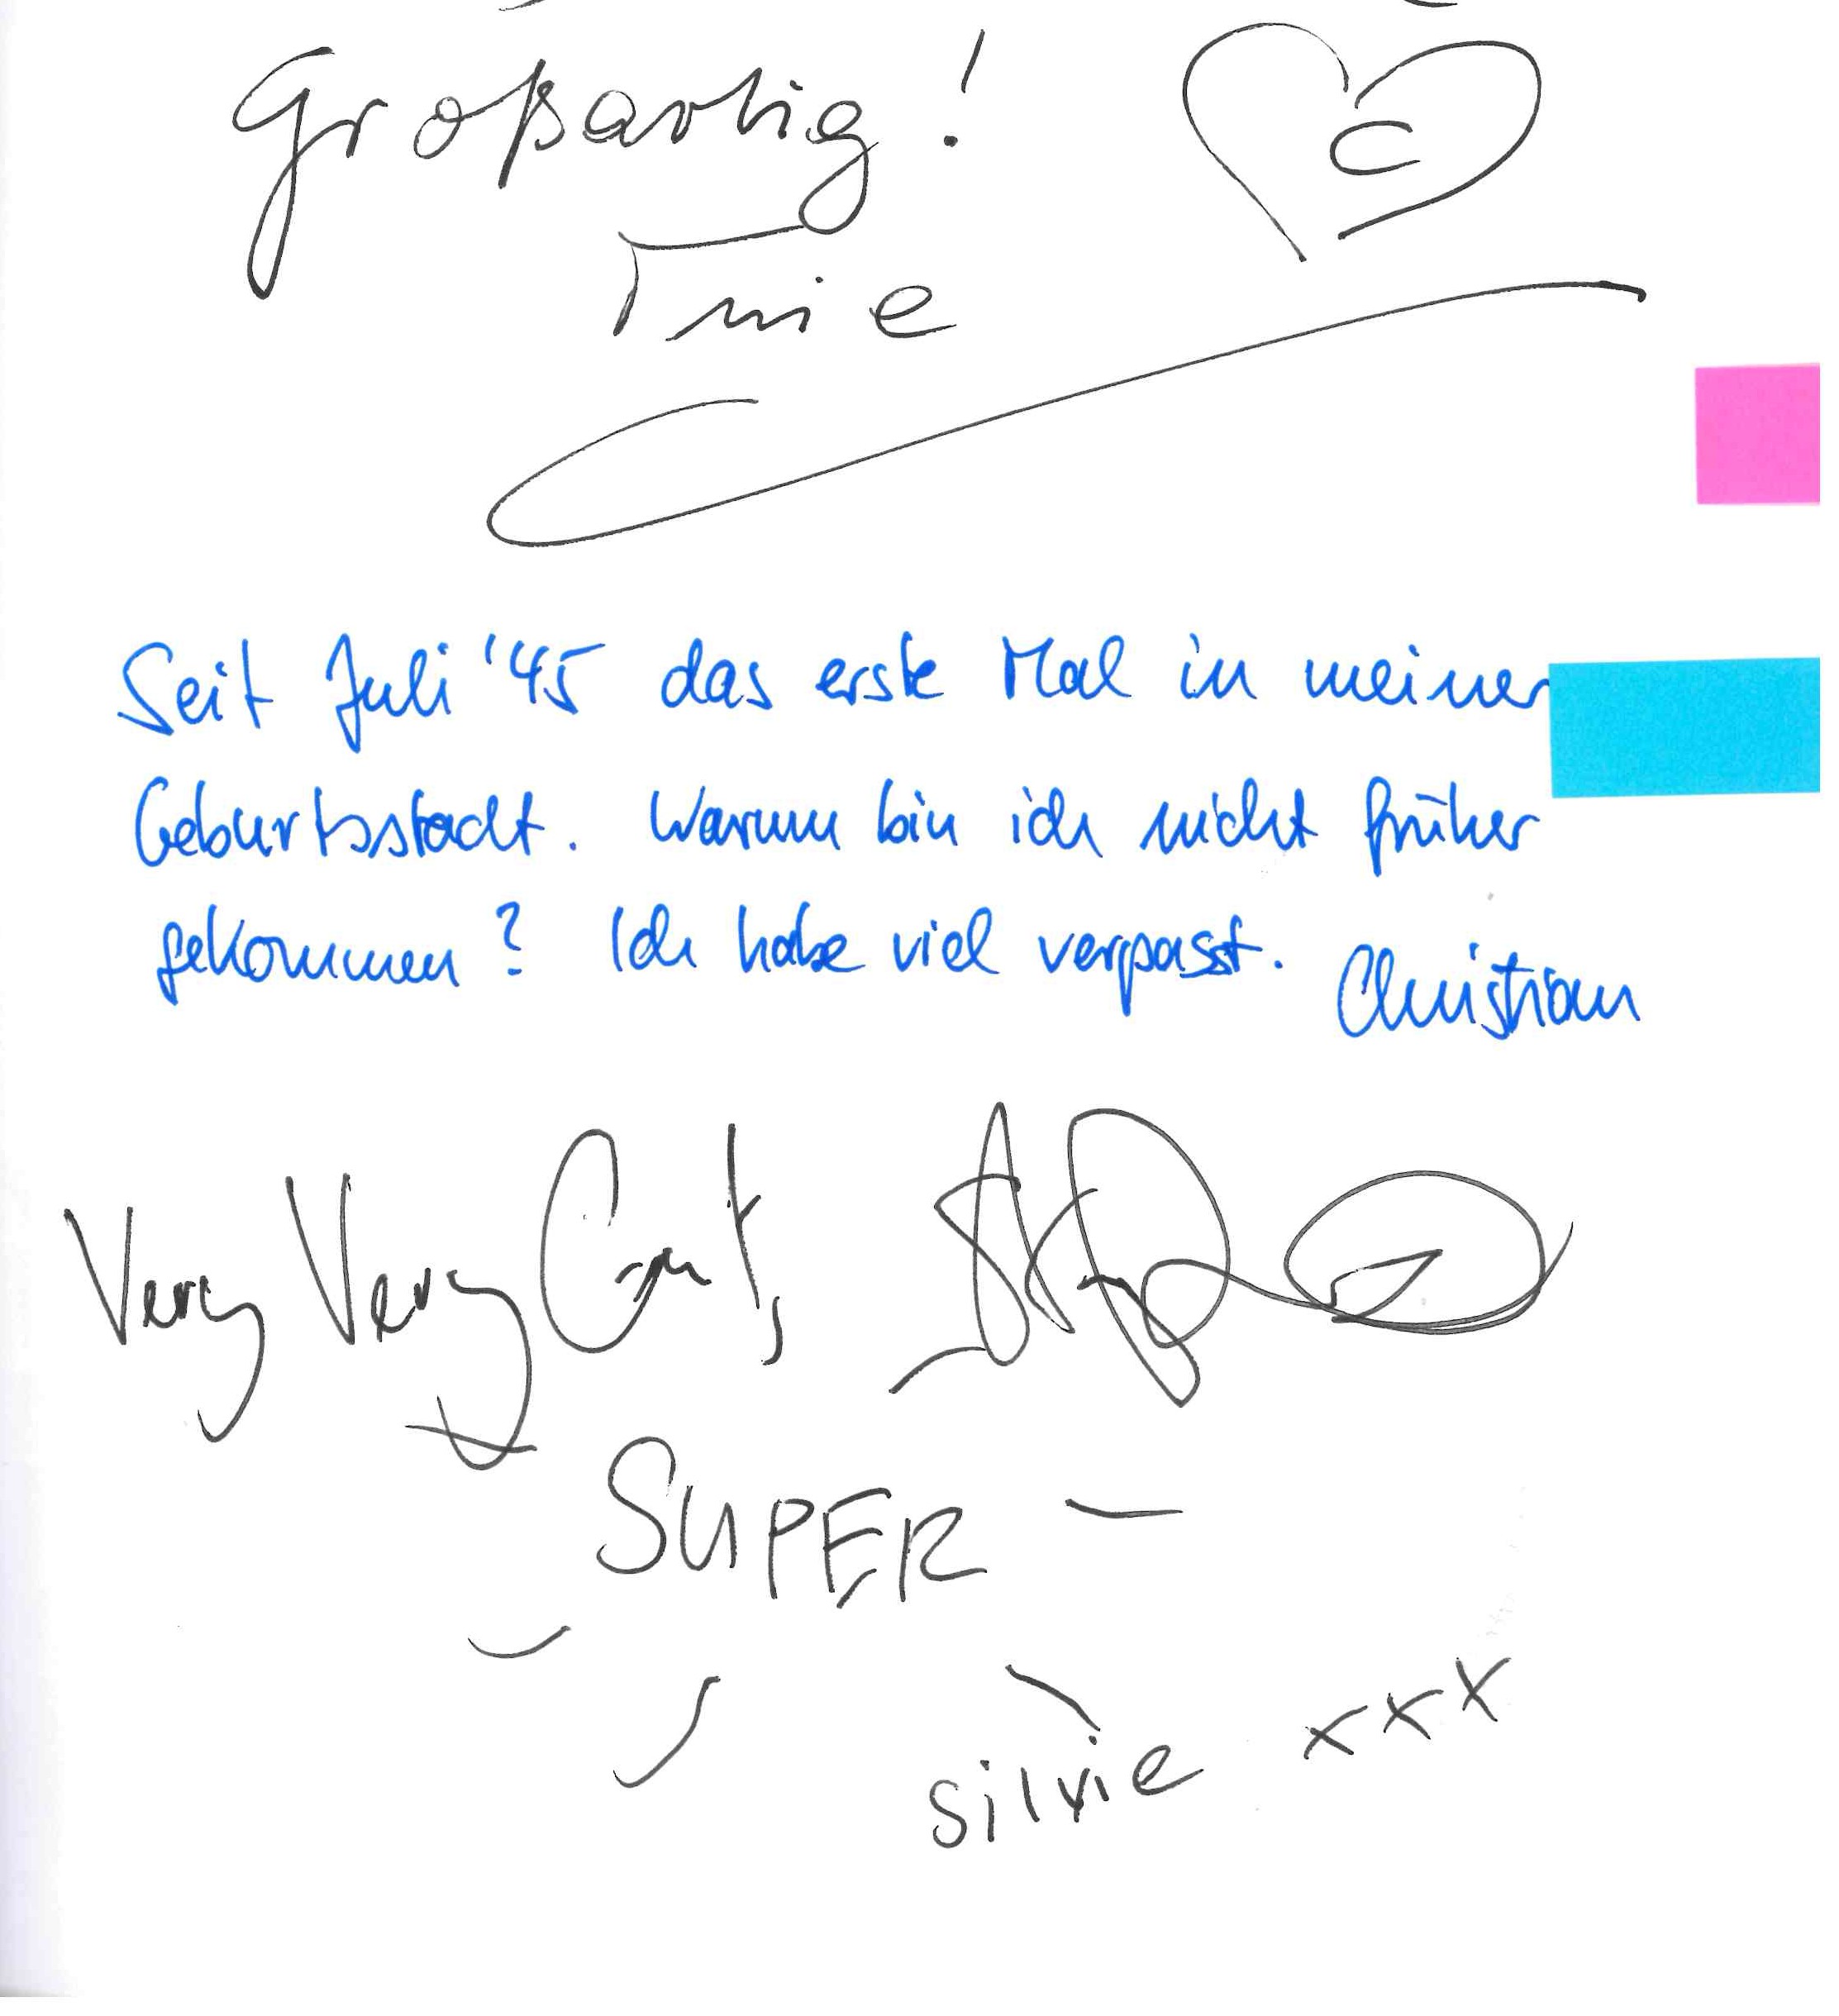 Großartig!
C
Seit Juli '45 das erste Mal in meiner
Geburtsstadt. Warum bin ich nicht früher
gekommen? Ich habe viel verpasst. Christian
Very Very Gut,
SUPER –
Silvie xxx